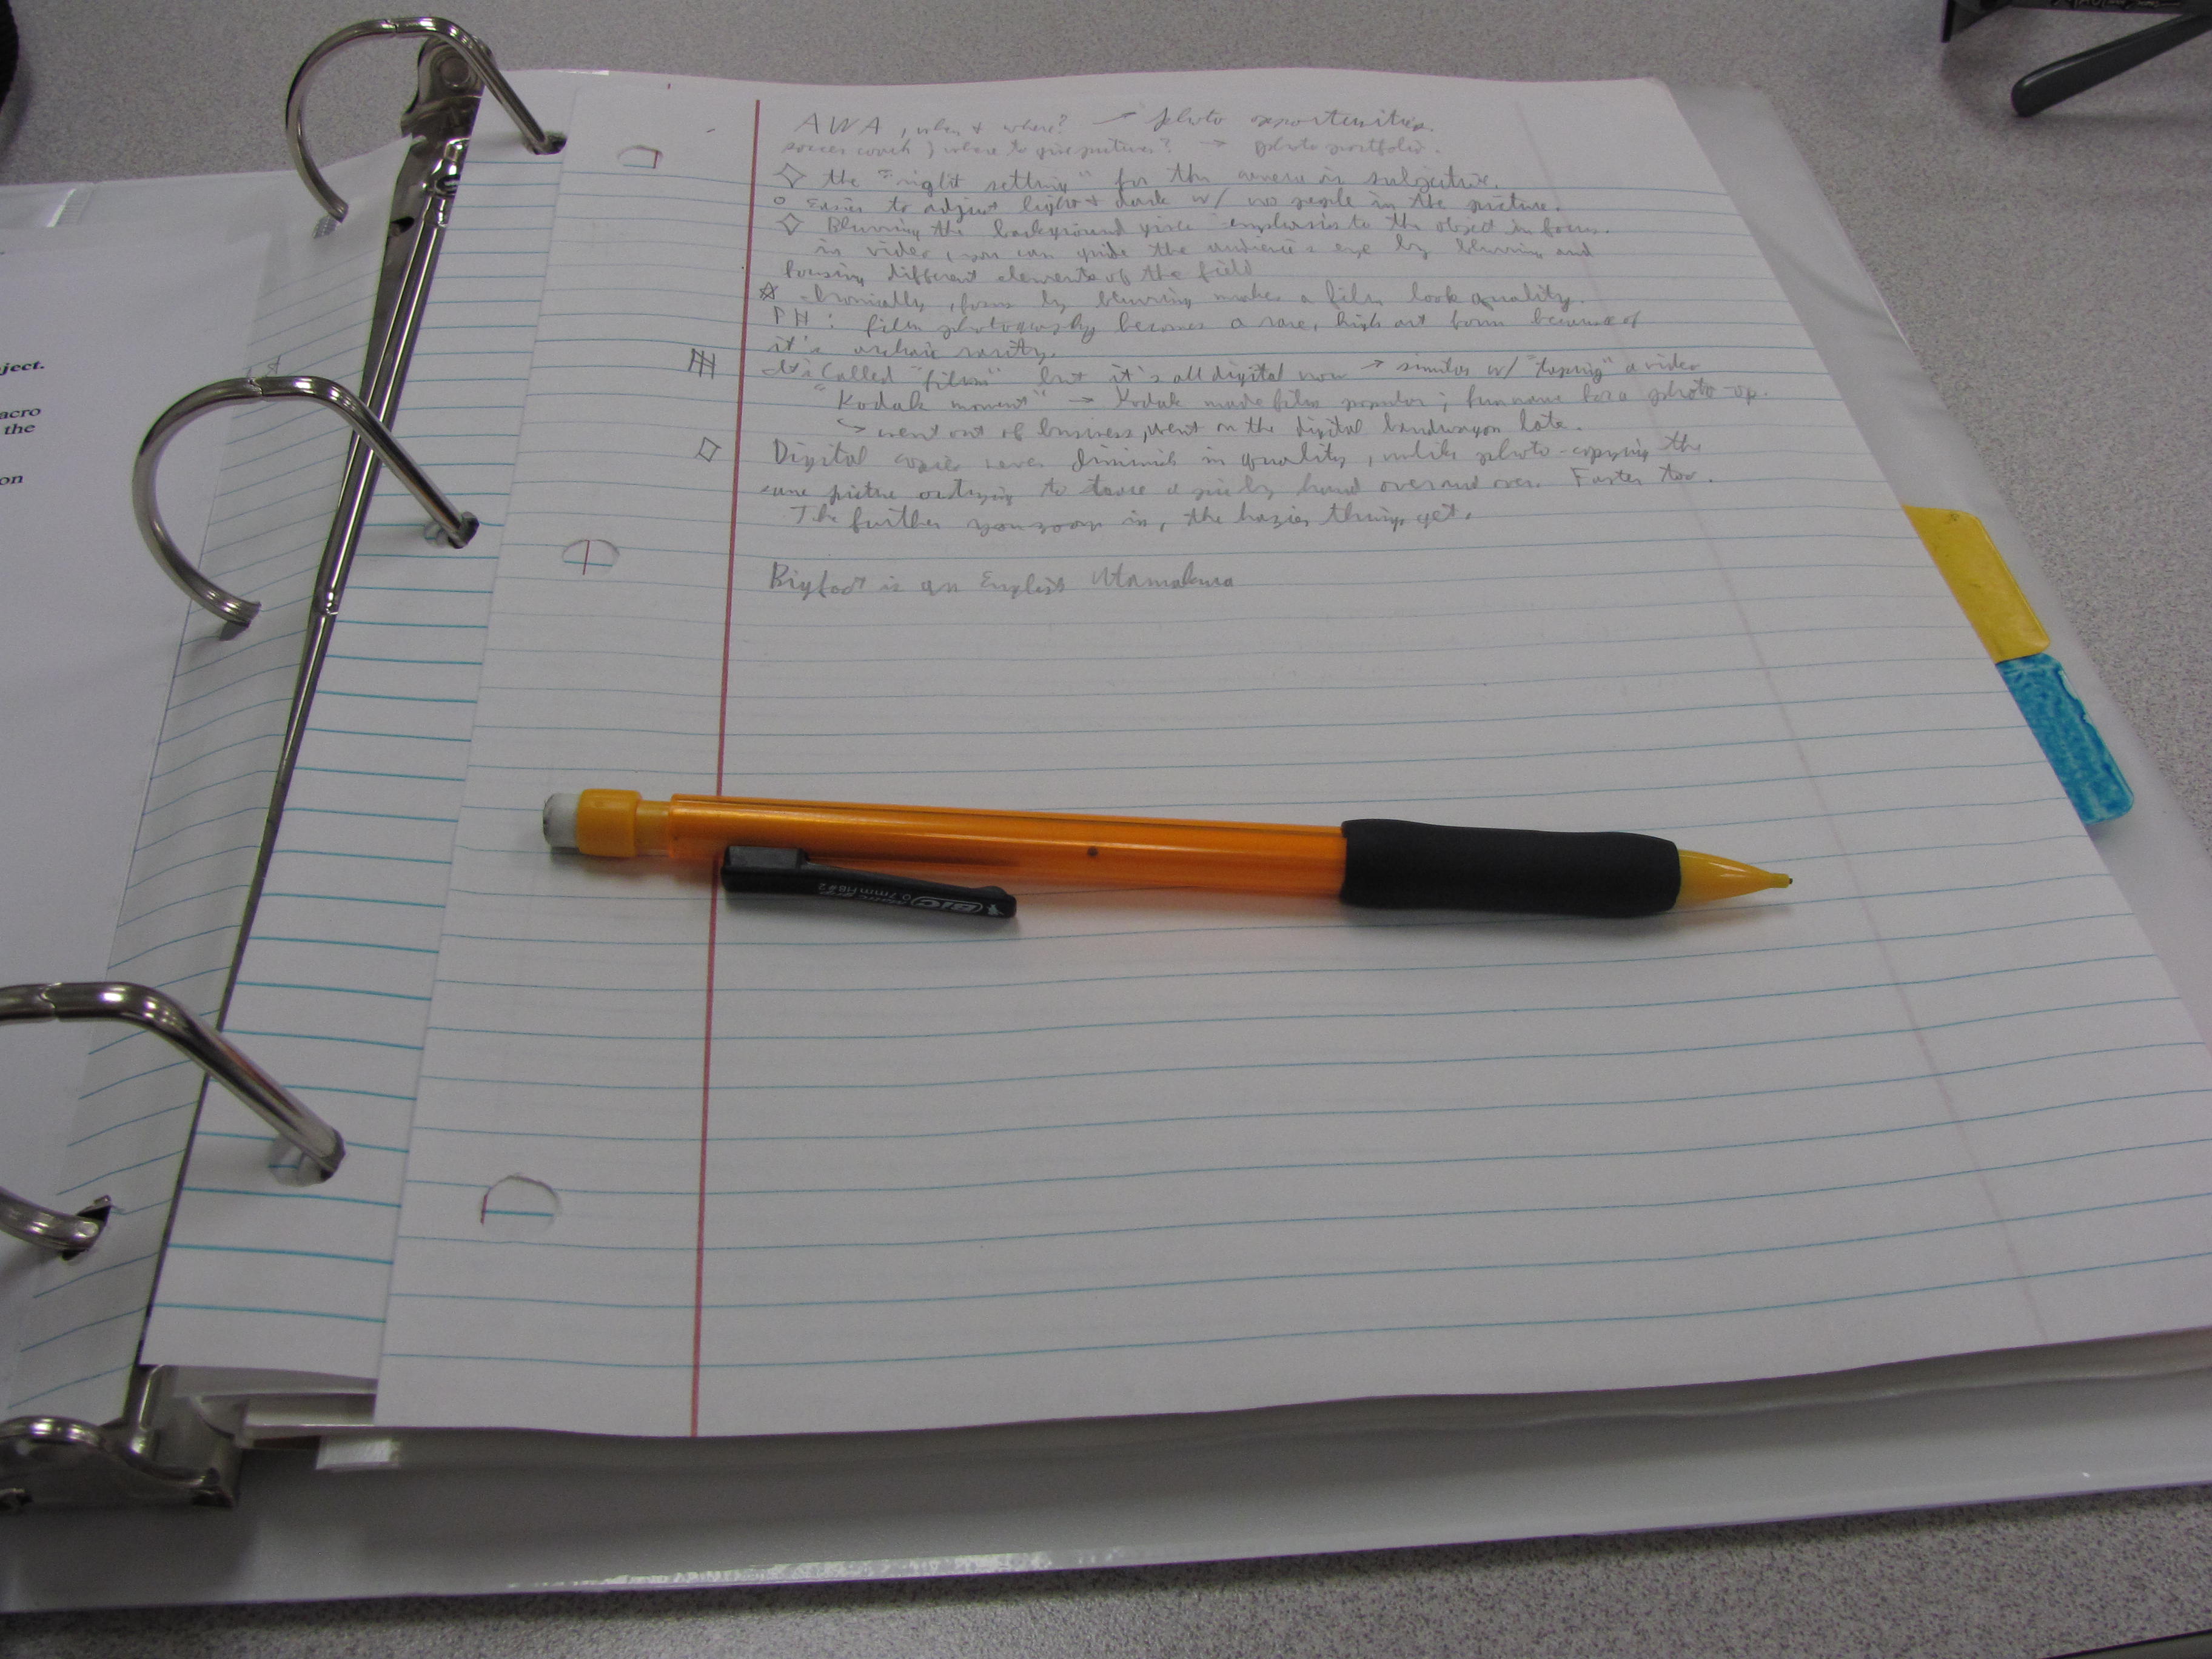 AWA, when & where? → photo opportunities.
soccer coach, where to give pictures? → photo portfolio.
the "right setting" for the camera is subjective.
Easier to adjust light & dark w/ no people in the picture.
Blurring the background gives emphasis to the object in focus.
in video, you can guide the audience's eye by blurring and
focusing different elements of the field
Ironically, focus by blurring makes a film look quality.
PH: film photography becomes a rare, high art form because of
it's archaic rarity.
It's called "film" but it's all digital now → similar w/ "taping" a video
"Kodak moment" → Kodak made film popular; fun name for a photo-op.
went out of business, went on the digital bandwagon late.
Digital copies never diminish in quality, unlike photo-copying the
same picture or trying to trace a pic by hand over and over. Faster too.
The further you zoom in, the hazier things get.
Bigfoot is an English
BIC
0.7mm HB #2
ject.
acro
the
on